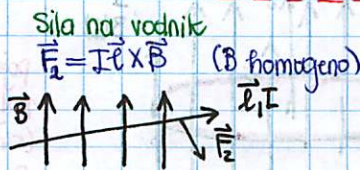 Sila na vodnik
F⃗₂ = I l⃗ × B⃗ (B homogeno)
B⃗ l⃗, I
F⃗₂